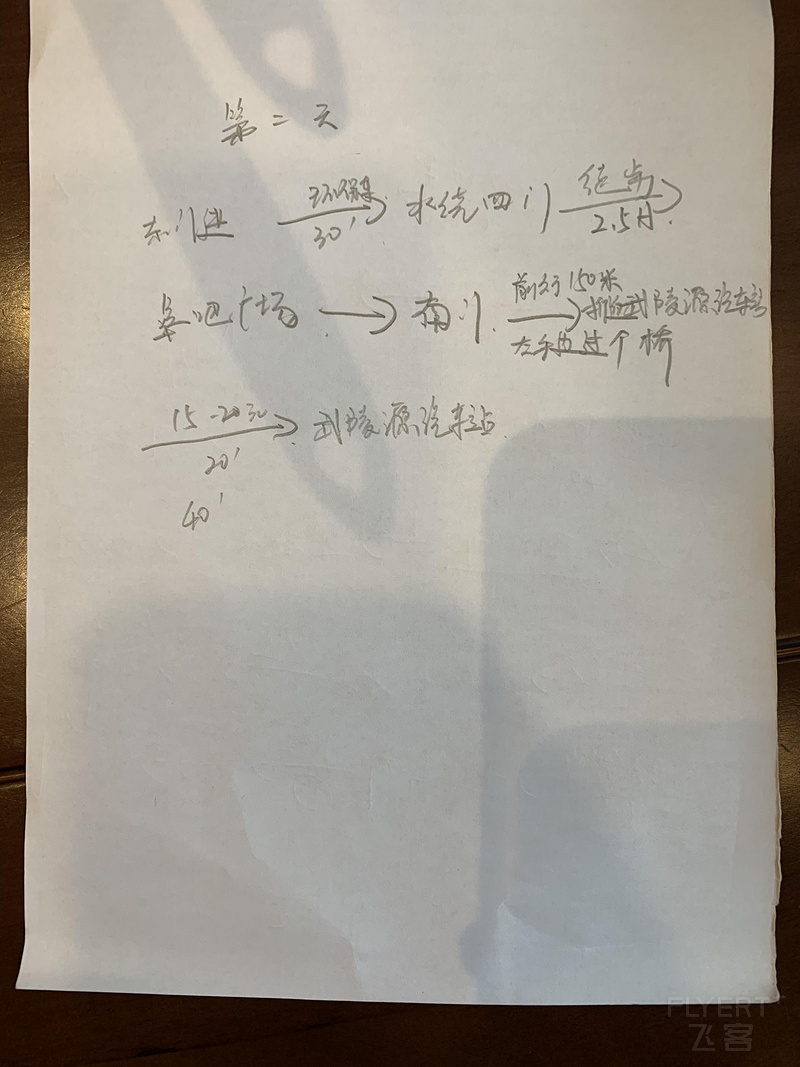 第二天
东门进 环保车 30' 水绕四门 徒步 2.5H
氧吧广场 → 南门 前行150米 武陵源汽车站
左手边过个桥
15-20元 武陵源汽车站
20'
40'
FLYERT
飞客